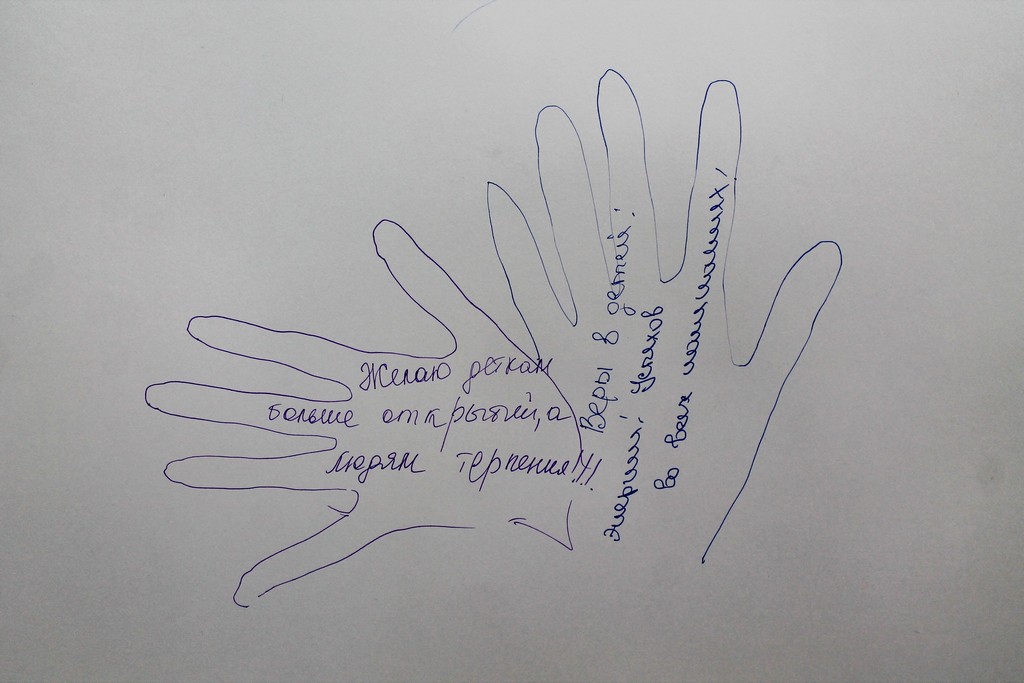 Желаю деткам
больше открытий, а
людям терпения!!!!
Веры в детей!
энергии! Успехов
во всех начинаниях!